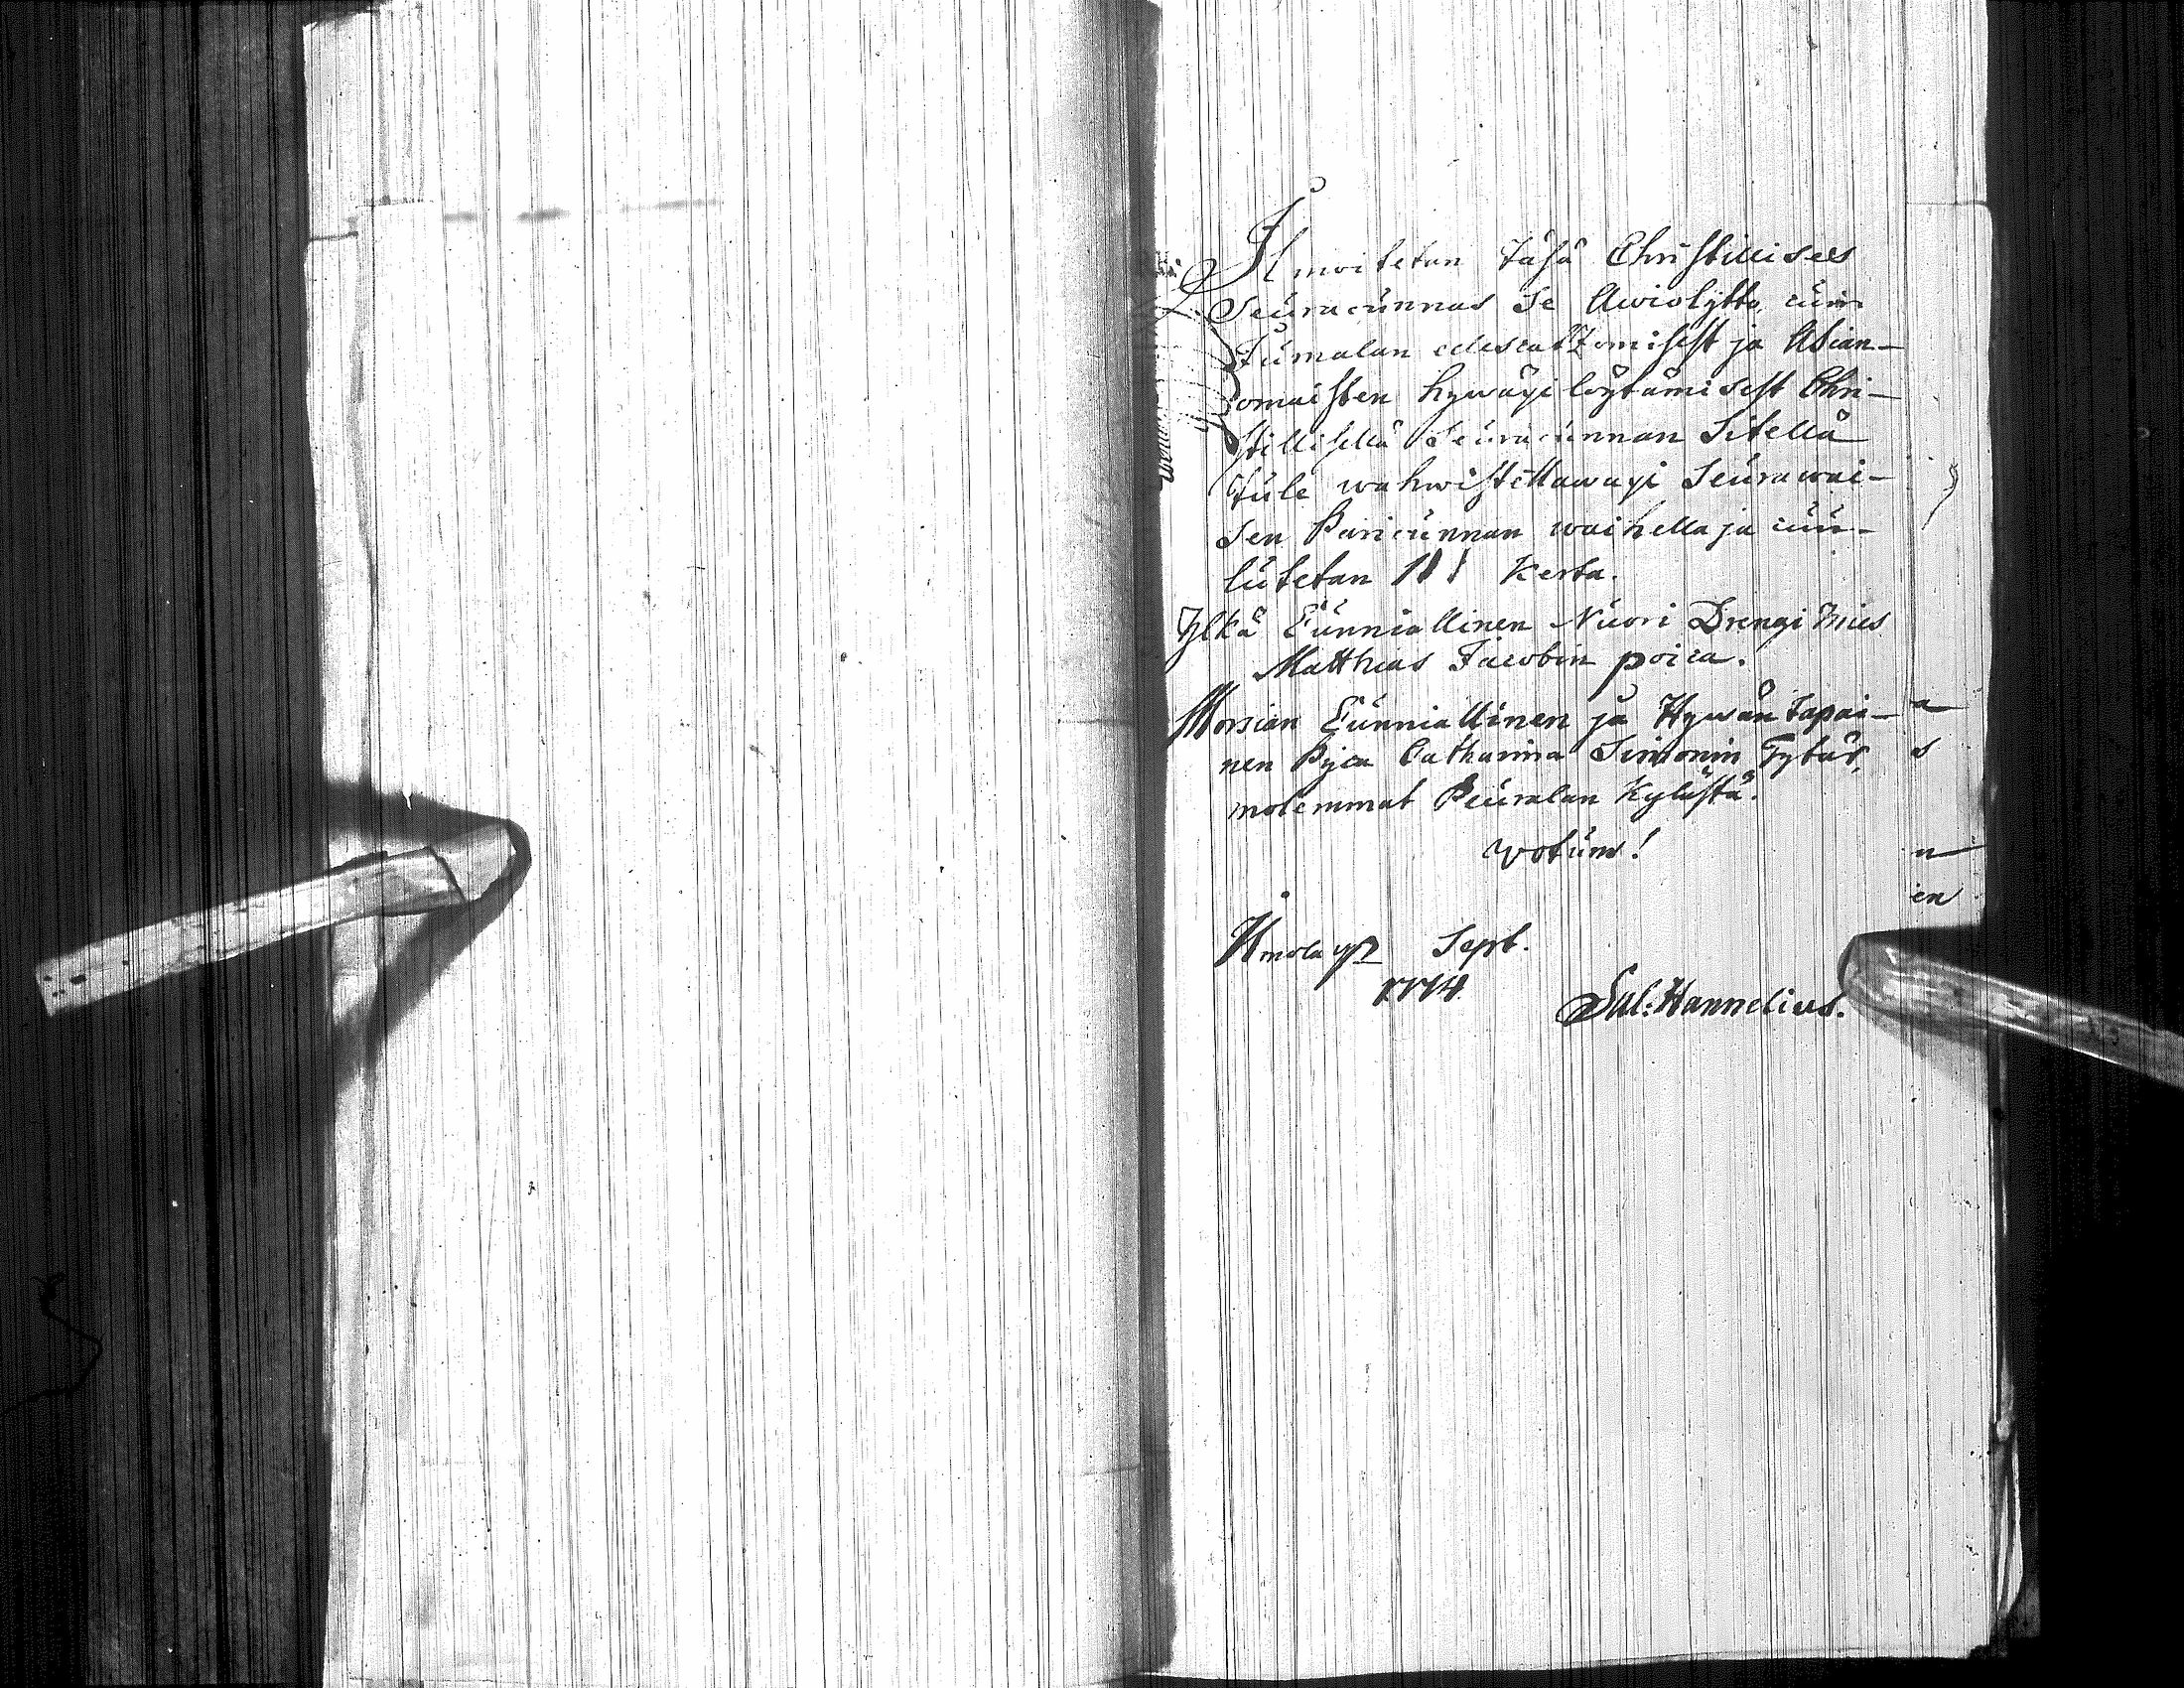 Ilmoitetan täsä Christillises
Seuracunnas se Awiolijtto, cuin
Jumalan edescatzomisest ja Asian-
omaisten hywäxi löytämisest Chri-
stillisellä Seuracunnan Sitellä
tule wahwistettawaxi seurawai-
sen Paricunnan waihella ja cuu-
lutetan III Kerta.
Ylkä Cunniallinen Nuori Drengi Mies
Matthias Jacobin poica.
Morsian Cunniallinen ja Hywän tapai-
nen Pijca Catharina Simonin Tytär,
molemmat Peuralan Kylästä.
votum!
Sept.
1774.
Sal: Hannelius.
a
s
n
en